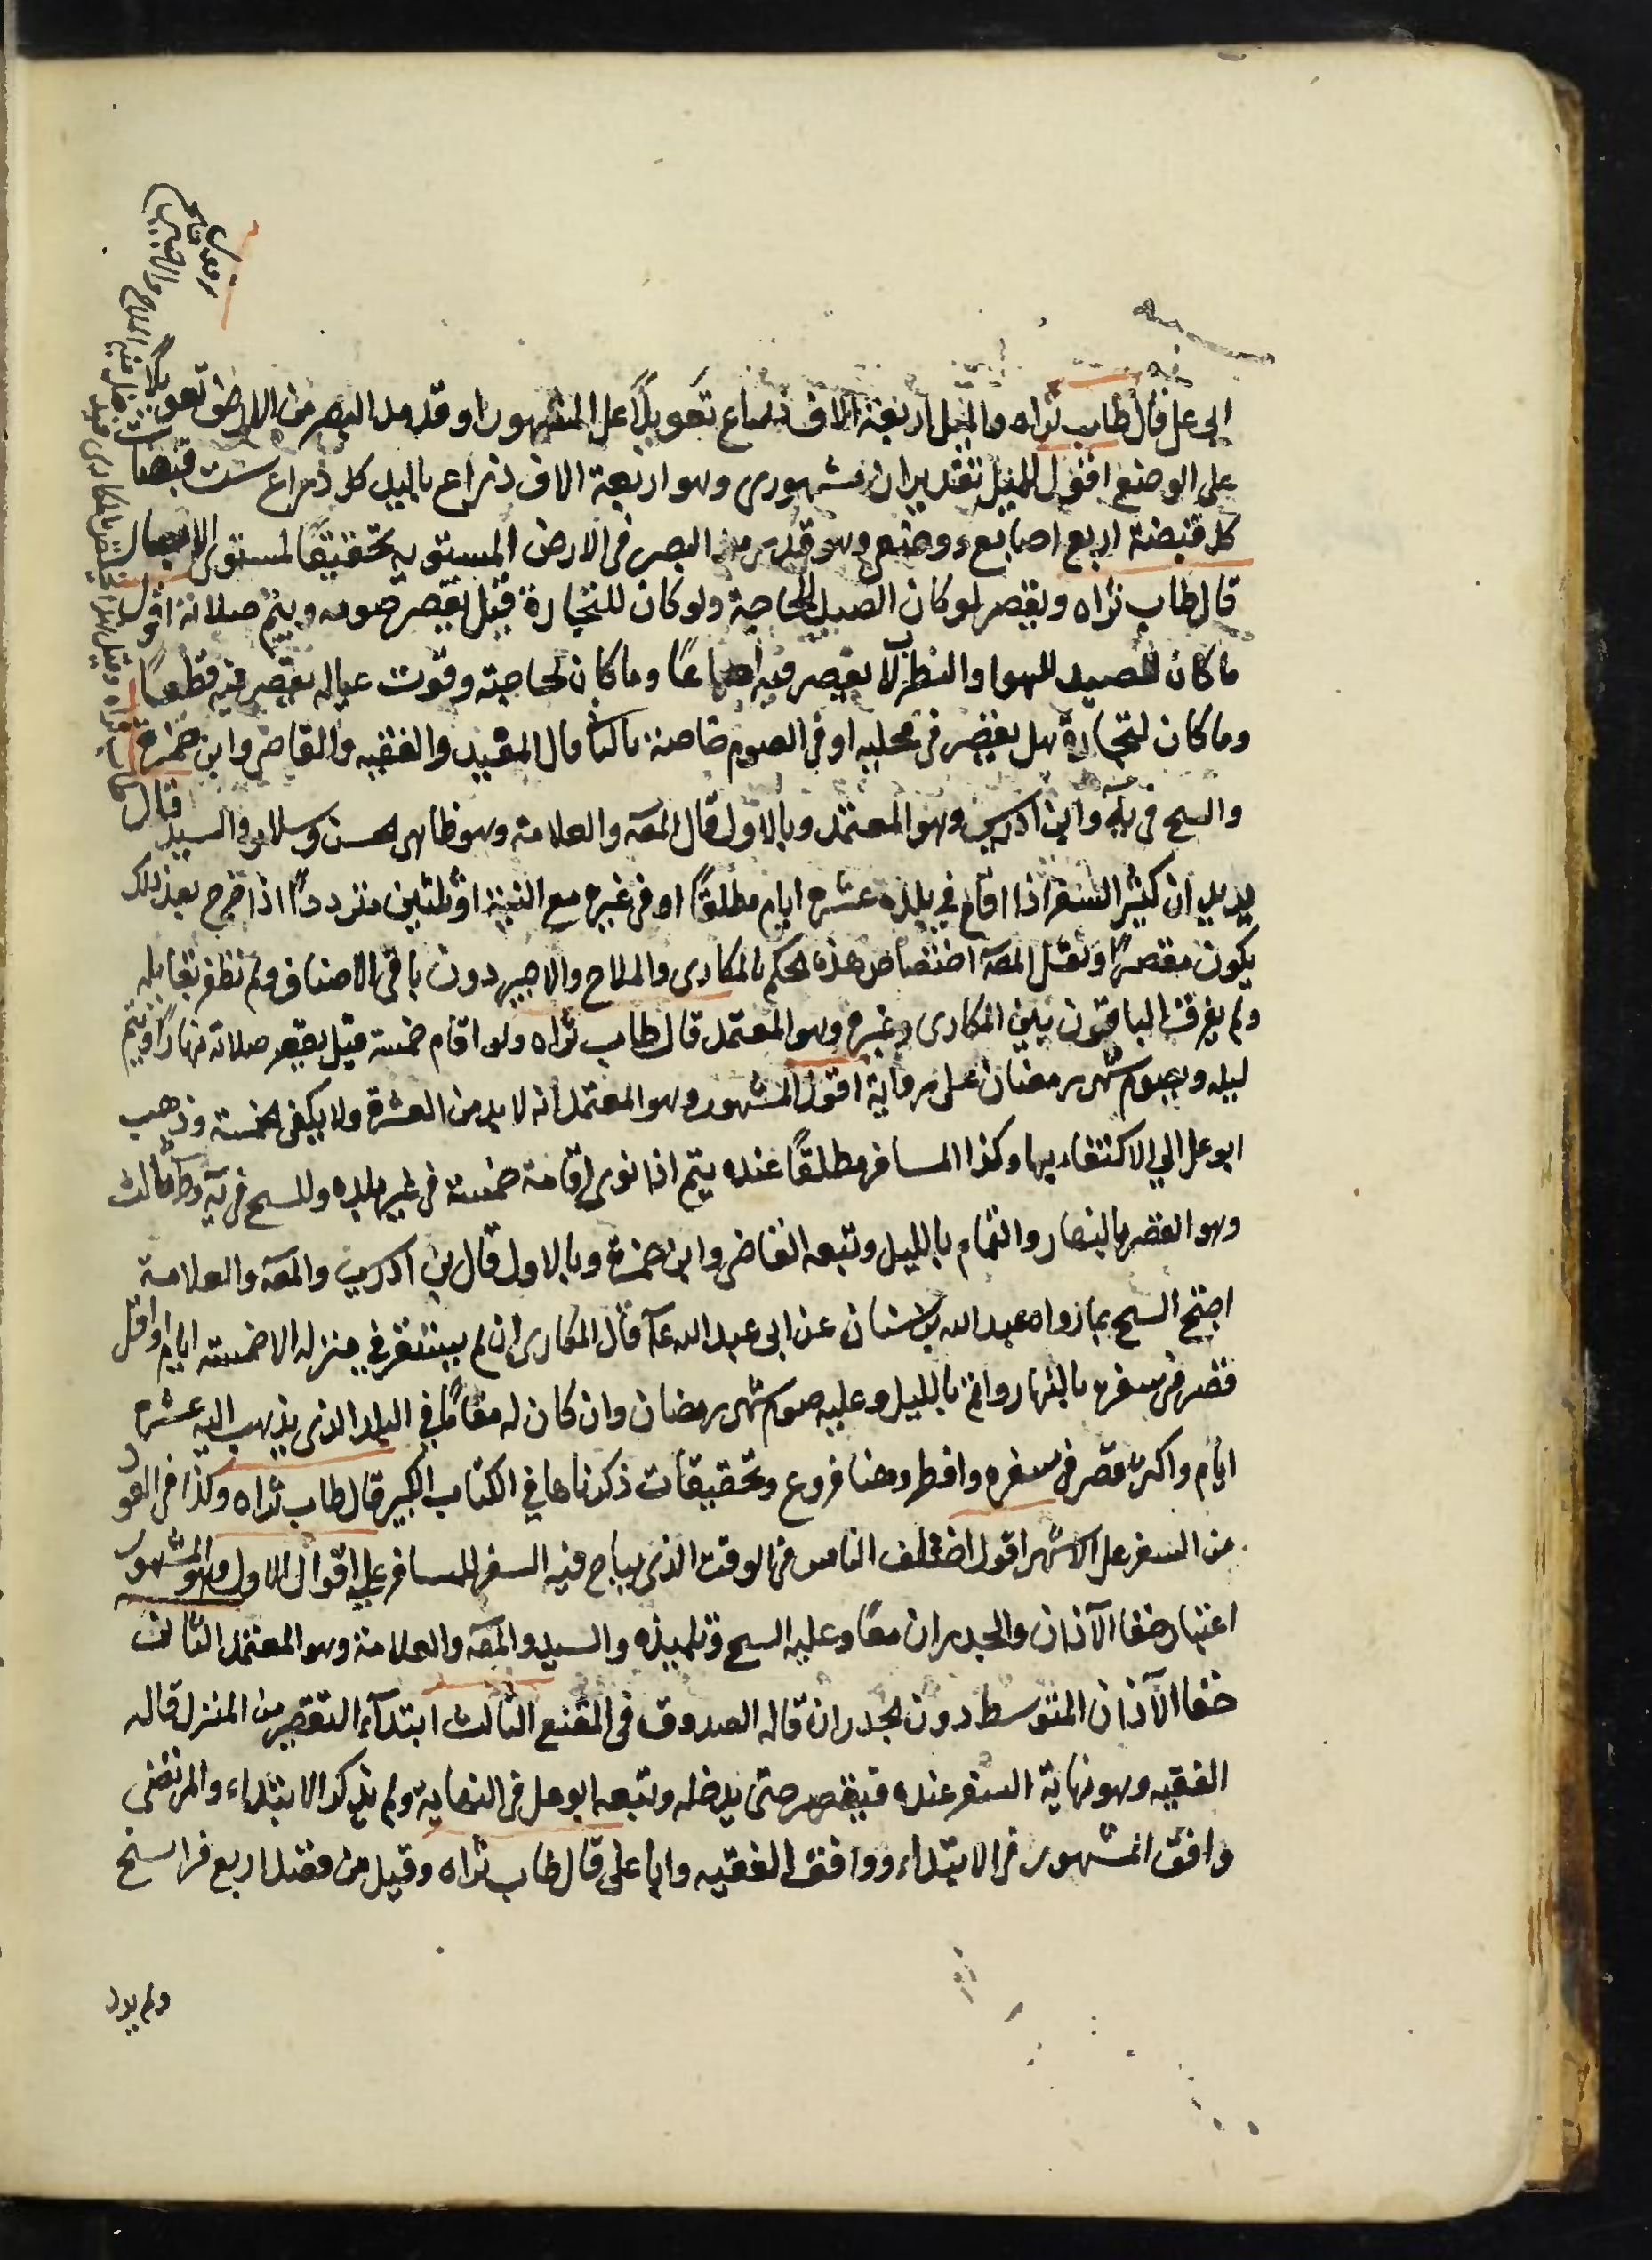 ابي علي قال طاب ثراه والميل اربعة الاف ذراع تعويلاً على المشهور او قدر مد البصر من الارض تعويلاً
على الوضع اقول للميل تقديران مشهوري وهو اربعة الاف ذراع باليد كل ذراع ست قبضات
كل قبضة اربع اصابع ووضعي وهو قدر مد البصر في الارض المستوية تحقيقا لمستوى الابصار
قال طاب ثراه ويقصر لو كان الصيد للحاجة ولو كان للتجارة قيل يقصر صومه ويتم صلاته اقول
ما كان للصيد للهوا والبطر لا يقصر فيه اجماعًا وما كان لحاجته وقوت عياله يقصر فيه قطعاً
وما كان لتجارة هل يقصر في محلييه او في الصوم خاصة بالثا قال المفيد والفقيه والقاضي وابن حمزة
والشيخ في يه وابن ادريس وهو المعتمد وبالاول قال المصـ والعلامة وهو ظاهر الحسن وسلار والسيد قال
يريد ان كثير السفر اذا اقام في بلده عشرة ايام مطلقاً او في غيره مع النية او ثلثين مترددًا اذا خرج بعد ذلك
يكون مقصراً ونقل المصـ اختصاص هذه الحكم بالمكاري والملاح والاجير دون باقي الاصناف ولم نظفر بقايله
ولم يفرق الباقون بين المكاري وغيره وهو المعتمد قال طاب ثراه ولو اقام خمسة قيل يقصر صلاته نهاراً ويتم
ليله ويصوم شهر رمضان على رواية اقول المشهور وهو المعتمد انه لا بد من العشرة ولا يكفي الخمسة وذهب
ابو علي الي الاكتفاء بها وكذا المسافر مطلقًا عنده يتم اذا نوى اقامة خمسة في غير بلده وللشيخ في يه وط ثالث
وهو القصر بالنهار والتمام بالليل وتبعه القاضي وابن حمزة وبالاول قال بن ادريس والمصـ والعلامة
احتج الشيخ بما رواه عبد الله بن سنان عن ابي عبد الله عـ قال المكاري ان لم يستقر في منزله الا خمسة ايام او اقل
قصر في سفره بالنهار واتم بالليل وعليه صوم شهر رمضان وان كان له مقامًا في البلد الذي يذهب اليه عشرة
ايام واكثر قصر في سفره وافطر وهنا فروع وتحقيقات ذكرناها في الكتاب الكبير قال طاب ثراه وكذا في العود
من السفر على الاشهر اقول اختلف الناس في الوقت الذي يباح فيه السفر للمسافر على اقوال الاول وهو المشهور
اعتبار خفا الآذان والجدران معًا وعليه الشيخ وتلميذه والسيد والمصـ والعلامة وهو المعتمد الثاني
خفا الآذان المتوسط دون الجدران قاله الصدوق في المقنع الثالث ابتدآء التقصير من المنزل قاله
الفقيه وهو نهاية السفر عنده فيقصر حتى يدخله وتبعه ابو علي في النهاية ولم يذكر الابتداء والمرتضى
وافق المشهور في الابتداء ووافق الفقيه وابا علي قال طاب ثراه وقيل من قصد اربع فراسخ
ولم يرد